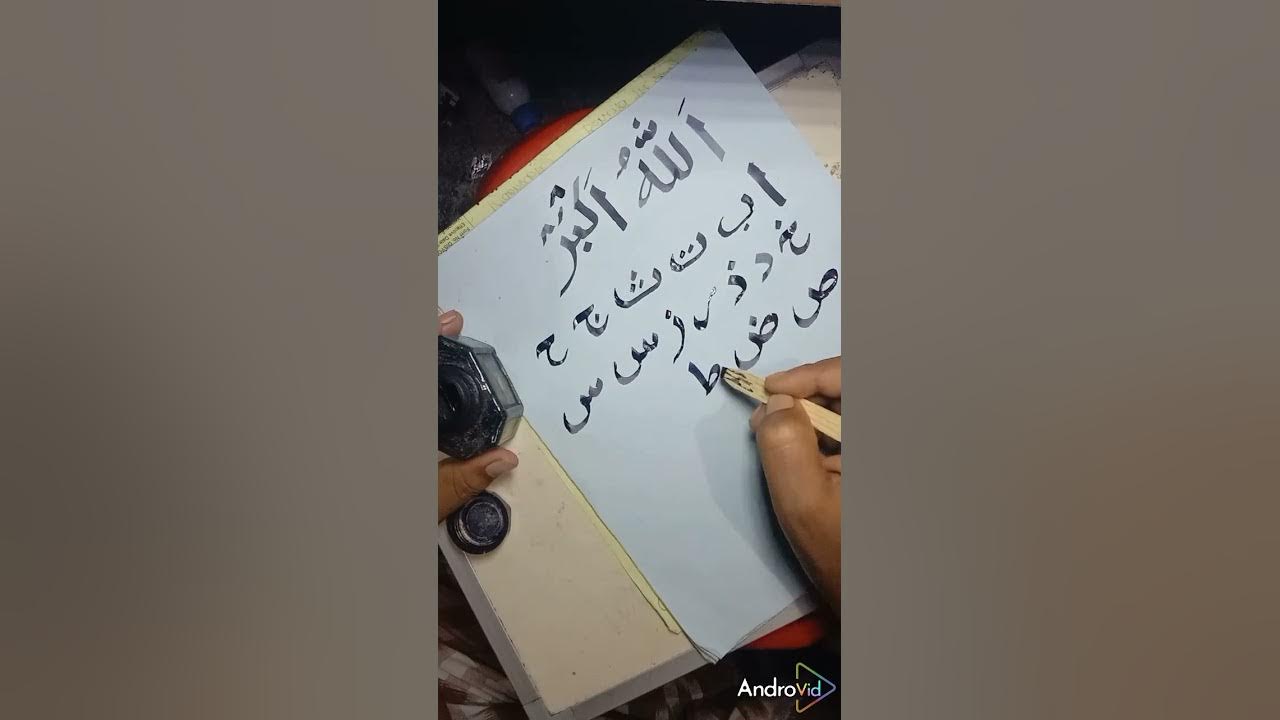 اَللّهُ اَکْبَرْ
ا ب ت ث ج ح
خ د ذ ر ز س س
ص ض ط
AndroVid